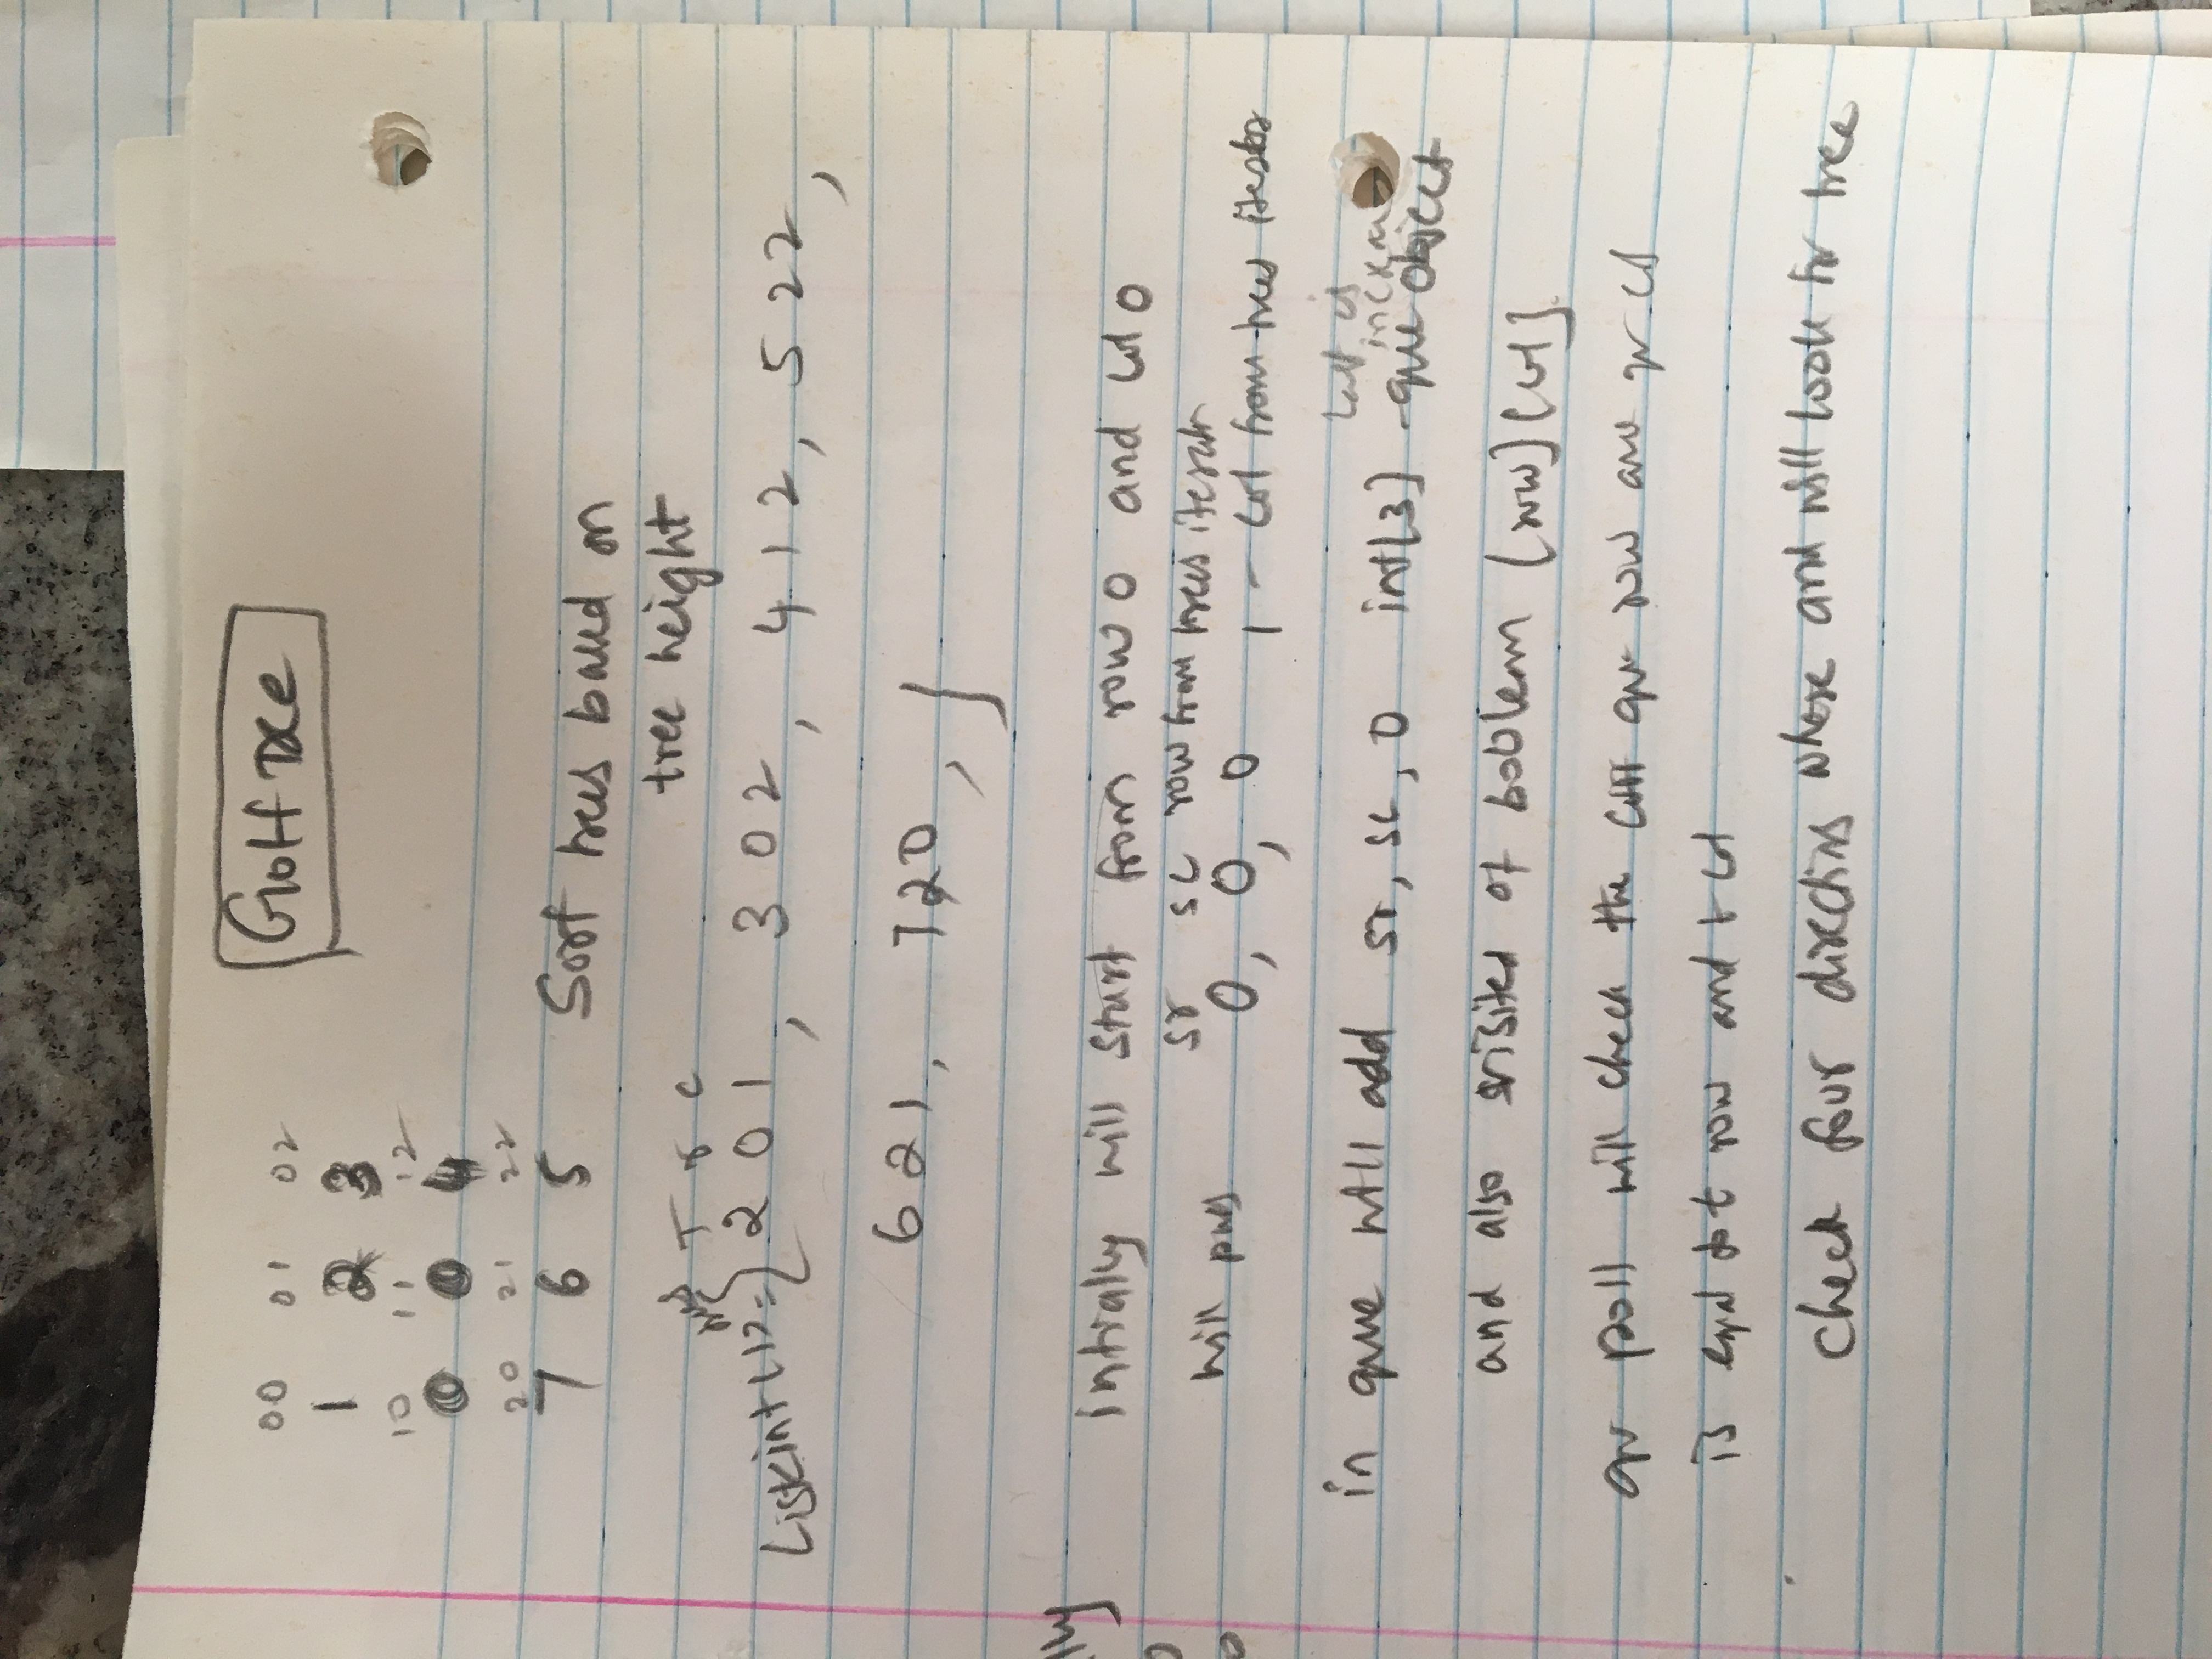 Golf Tree
00 01 02
1 2 3
10 11 12
0 0 4
20 21 22
7 6 5 Sort trees based on
tree height
trees T r c
List<int[]>={ 2 0 1, 3 0 2, 4 1 2, 5 2 2,
6 2 1, 7 2 0, }
lly
intially will start from row 0 and col 0
sr sc row from trees iterator
will pass 0, 0, 0 1 - col from trees iterator
last is
in que will add sr, sc, 0 int[3] - que object
and also visited of boolean [row][col].
qu poll will check the que row and qu col
is equal to t row and t col
check four directins where and will look for tree